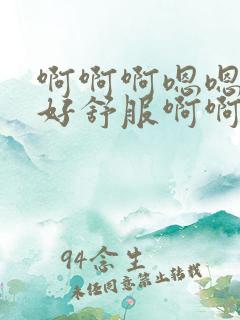 啊啊啊嗯嗯
好舒服啊啊
94念生
未经同意禁止转载